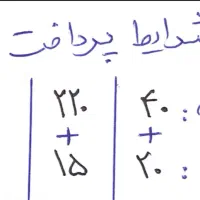 شرایط پرداخت
: ۴۰ | ۲۲۰
+ | +
: ۲۰ | ۱۵